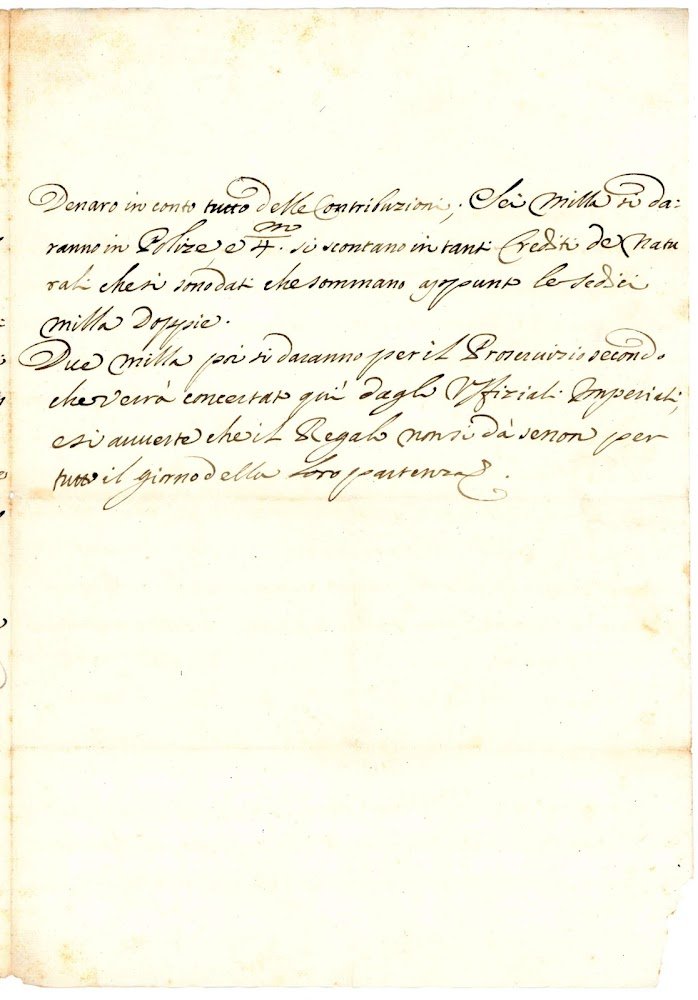 Denaro in conto tutto delle Contribuzioni; Sei milla si da:
ranno in Polize, e m/4. si scontano in tanti Crediti de Natu
rali che si sono dati che sommano appunto le Sedici
milla Doppie.
Due milla poi si daranno per il Proservizio secondo
che verrà concertato quì dagli Uffiziali Imperiali,
e si avverte che il Regalo non si dà se non per
tutto il giorno della loro partenza.